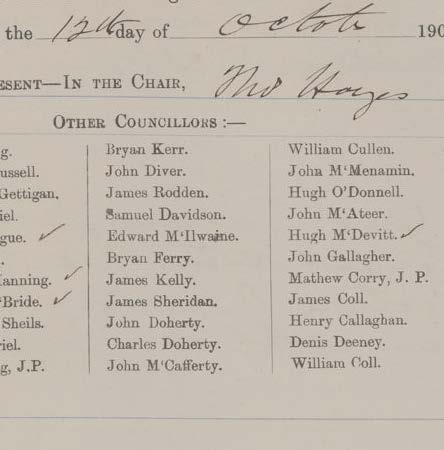 the 12th day of Octob 190
ESENT—IN THE CHAIR, Thos Hayes
OTHER COUNCILLORS :—
g. Bryan Kerr. William Cullen.
ussell. John Diver. John M‘Menamin.
Gettigan. James Rodden. Hugh O’Donnell.
iel. Samuel Davidson. John M‘Ateer.
gue. ✓ Edward M‘Ilwaine. Hugh M‘Devitt. ✓
. Bryan Ferry. John Gallagher.
anning. ✓ James Kelly. Mathew Corry, J. P.
‘Bride. ✓ James Sheridan. James Coll.
Sheils. John Doherty. Henry Callaghan.
riel. Charles Doherty. Denis Deeney.
g, J.P. John M‘Cafferty. William Coll.